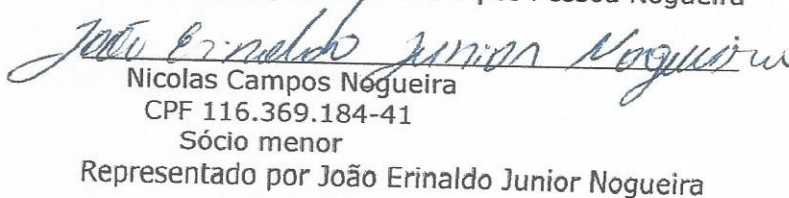 Pessoa Nogueira
João Erinaldo Junior Nogueira
Nicolas Campos Nogueira
CPF 116.369.184-41
Sócio menor
Representado por João Erinaldo Junior Nogueira